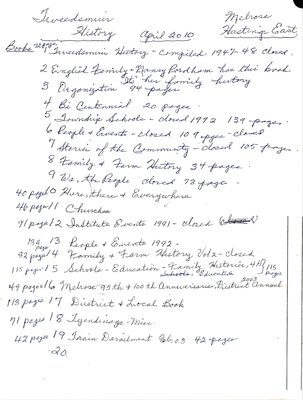 Tweedsmuir Melrose
History April 2010 Hastings East
Books
1 Tweedsmuir History - Compiled 1947-48 closed.
2 English Family - Nancy Fordham has this book
It's her family history
3 Organization 94 pages
4 Bi Centennial 20 pages.
5 Township Schools - closed 1972 139 - pages.
6 People & Events - closed 109 pgs - closed
7 Stories of the Community - closed 105 pages.
8 Family & Farm History 34 - pages.
9 We, the People closed 73 page.
40 pages 10 Here, there & Everywhere
46 pages 11 Churches
91 pages 12 Institute Events 1991 - closed
13 People & Events 1992 -
92 pages 14 Family & Farm History Vol 2 - closed
115 pages 15 Schools - Education - Family Histories, 4H 115 pages
Schools. Education
49 pages 16 Melrose 95th & 100th Anniversaries, District Annual 2003
113 pages 17 District & Local Book
71 pages 18 Tyendinaga - Misc
42 pages 19 Train Derailment 42 - pages
20